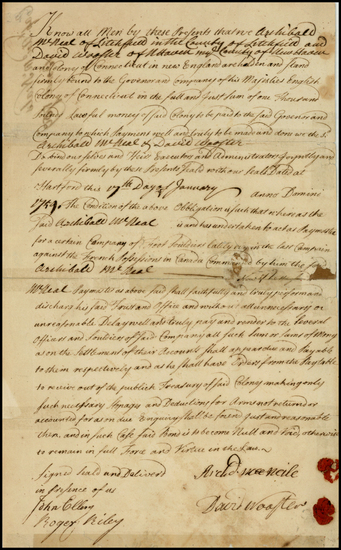 Know all Men by these Presents that we Archibald
McNeal of Litchfield in the County of Litchfield and
David Wooster of N:Haven in ye County of New Haven
and Colony of Connecticut in new England are holden and stand
jointly bound to the Governor and company of his Majesties English
Colony of Connecticut in the full and just sum of one Thousand
Pounds Lawful money of said Colony to be paid to the said Governor and
Company to which Payment well and truly to be made and done we the sd
Archibald McNeal & David Wooster
Do bind our selves and Heirs Executors and Administrators joyntly and
severally firmly by these Presents Seald with our seals Dated at
Hartford this 17th Day of January Anno Domini
1759. The Condition of the above Obligation is such that whereas the
said Archibald McNeal is and has undertaken to act as Paymaster
for a certain Company of foot Souldiers lately in the last Campaign
against the French Possessions in Canada Commanded by him the sd
Archibald McNeal
McNeal Paymaster as above said shall faithfully and truly perform and
discharge his said Trust and Office and without unnecessary or
unreasonable Delay well and truly pay and render to the several
Officers and Souldiers of said Company all such Sum or Sums of Money
as on the Settlement of their Accounts shall be due and Payable
to them respectively and as he shall have Orders from the Pay table
to receive out of the publick Treasury of said Colony making only
such necessary Stopages and Deductions for Arms not returned or
accounted for as on due Enquiry shall be found just and reasonable
then and in such Case said Bond is to become Null and Void, otherwise
to remain in full Force and Virtue in the Law
Signed Seald and Deliverd
in presence of us
Archd McNeile
John Ellery
David Wooster
Roger Riley